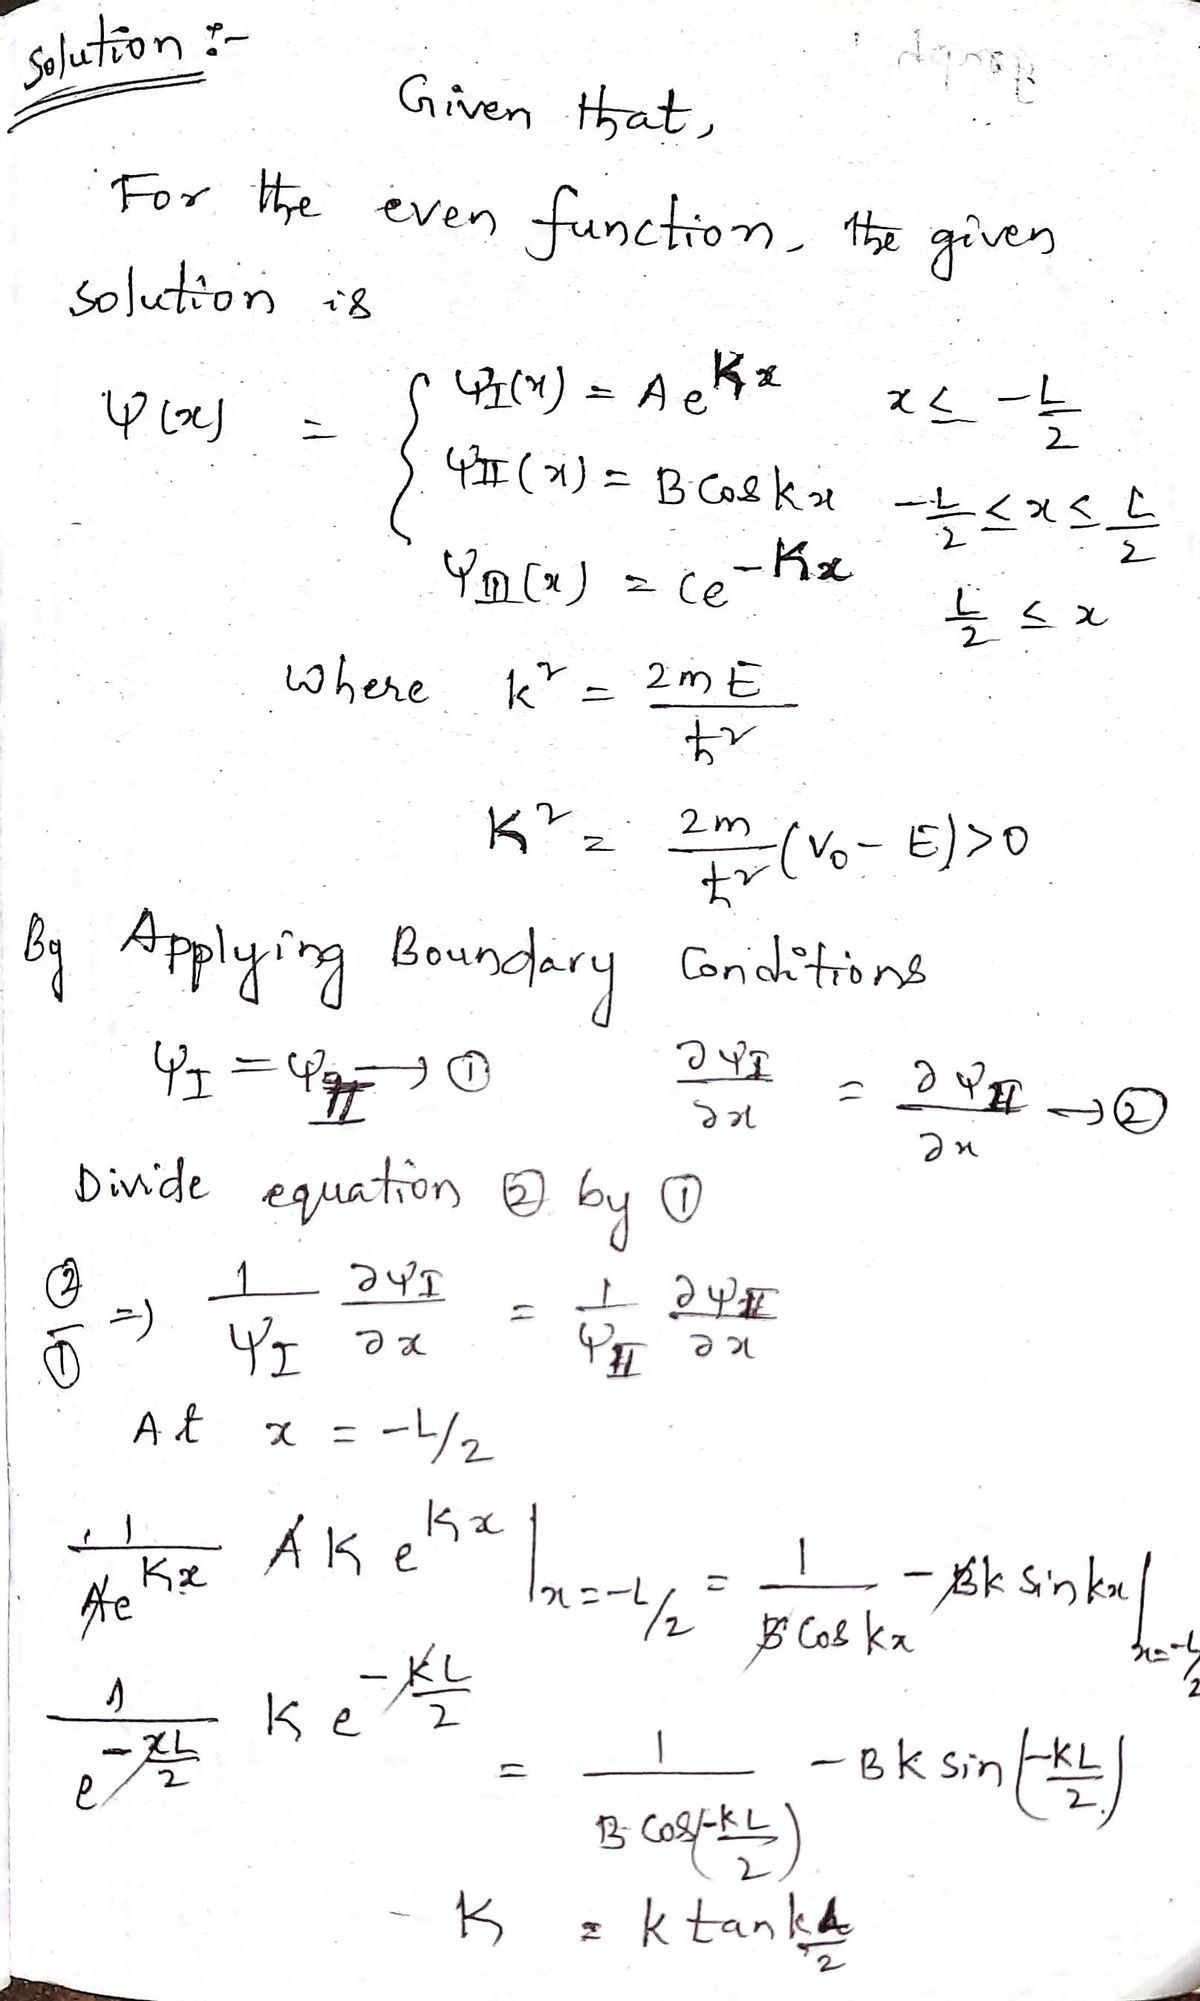 Solution :-
Given that,
For the even function, the given
solution is
ψ(x) = { ψI(x) = A e^Kx   x ≤ -L/2
ψII(x) = B Cos kx   -L/2 ≤ x ≤ L/2
ψIII(x) = Ce^-Kx   L/2 ≤ x
where k² = 2mE/ħ²
K² = 2m/ħ² (V0 - E) > 0
By Applying Boundary Conditions
ψI = ψII → ①   ∂ψI/∂x = ∂ψII/∂x → ②
Divide equation ② by ①
②/① ⇒ 1/ψI ∂ψI/∂x = 1/ψII ∂ψII/∂x
At x = -L/2
1/Ae^Kx A K e^Kx |x=-L/2 = 1/B Cos kx - Bk Sin kx |x=-L/2
1/e^-KL/2 K e^-KL/2 = 1/B Cos(-kL/2) - B k sin(-kL/2)
K = k tan kL/2